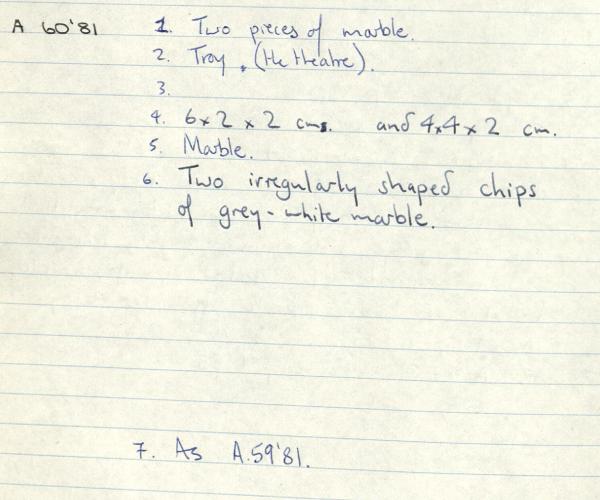 A 60'81 1. Two pieces of marble.
2. Troy. (the theatre).
3.
4. 6x2 x 2 cms. and 4x4 x 2 cm.
5. Marble.
6. Two irregularly shaped chips
of grey-white marble.
7. As A.59'81.